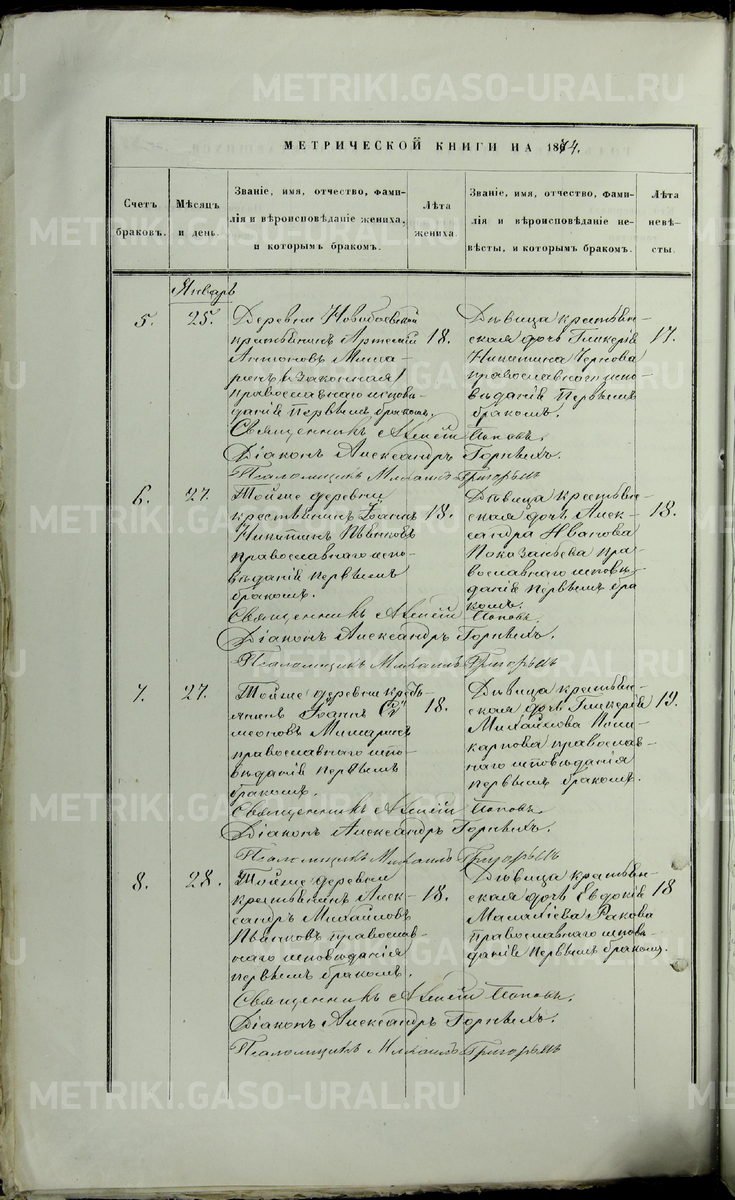 METRIKI.GASO-URAL.RU
МЕТРИЧЕСКОЙ КНИГИ НА 1874.
Счетъ браковъ.
Мѣсяцъ и день.
Званіе, имя, отчество, фами-
лія и вѣроисповѣданіе жениха,
и которымъ бракомъ.
Лѣта
жениха.
Званіе, имя, отчество, фами-
лія и вѣроисповѣданіе не-
вѣсты, и которымъ бракомъ.
Лѣта
невѣ-
сты.
Январь
5. 25.
Деревни
крестьянинъ Артемій 18.
Антоновъ Миша-
ринъ (законная)
православнаго исповѣ-
данія первымъ бракомъ.
Дѣвица крестьян-
ская дочь Гликерія 17.
Никитина Чернова
православнаго испо-
вѣданія первымъ
бракомъ.
Священникъ Алексій Поповъ.
Діаконъ Александръ Горныхъ.
Псаломщикъ Михаилъ Григорьевъ
6. 27.
Тойже деревни
крестьянинъ Іоаннъ 18.
Никитинъ Пьянковъ
православнаго испо-
вѣданія первымъ
бракомъ.
Дѣвица крестьян-
ская дочь Алек- 18.
сандра Иванова
Показаньева пра-
вославнаго исповѣ-
данія первымъ бра
комъ.
Священникъ Алексій Поповъ.
Діаконъ Александръ Горныхъ.
Псаломщикъ Михаилъ Григорьевъ
7. 27.
Тойже деревни кресть-
янинъ Іоаннъ Си- 18.
меоновъ Мишаринъ
православнаго испо-
вѣданія первымъ
бракомъ.
Дѣвица крестьян-
ская дочь Гликерія 19.
Михайлова Поли-
карпова православ-
наго исповѣданія
первымъ бракомъ.
Священникъ Алексій Поповъ.
Діаконъ Александръ Горныхъ.
Псаломщикъ Михаилъ Григорьевъ
8. 28.
Тойже деревни
крестьянинъ Алек- 18.
сандръ Михайловъ
Пьянковъ православ-
наго исповѣданія
первымъ бракомъ.
Дѣвица крестьян-
ская дочь Евдокія 18
Малахіева Ракова
православнаго исповѣ-
данія первымъ бракомъ.
Священникъ Алексій Поповъ.
Діаконъ Александръ Горныхъ.
Псаломщикъ Михаилъ Григорьевъ